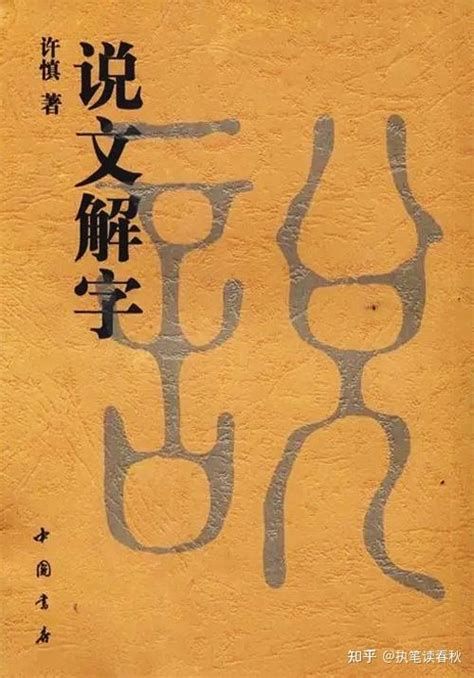 许慎 著
说文解字
說
中国书店
知乎 @执笔读春秋